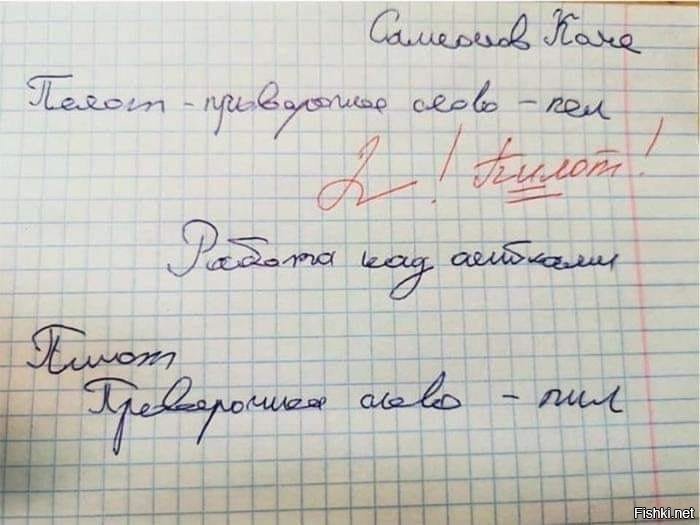 Самсонов Коле
Пелот - приверочное слово - пел
2! Пилот!
Работа над ашибками
Пилот
Преверочнае слово - пил
Fishki.net